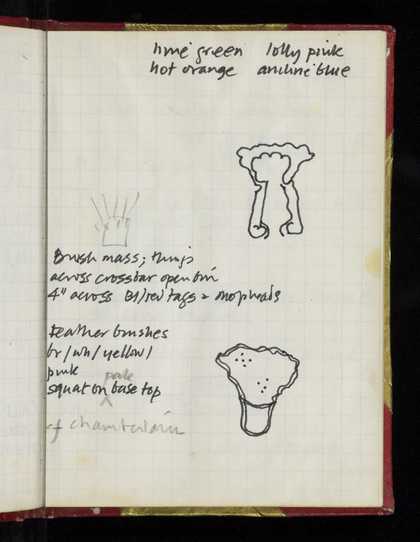 lime green lolly pink
hot orange aniline blue
Brush mass; things
across crossbar open
4" across Bl/red tags = mopheads
Feather brushes
br/wh/yellow/
pink
pale
squat on base top
cf chamberlain